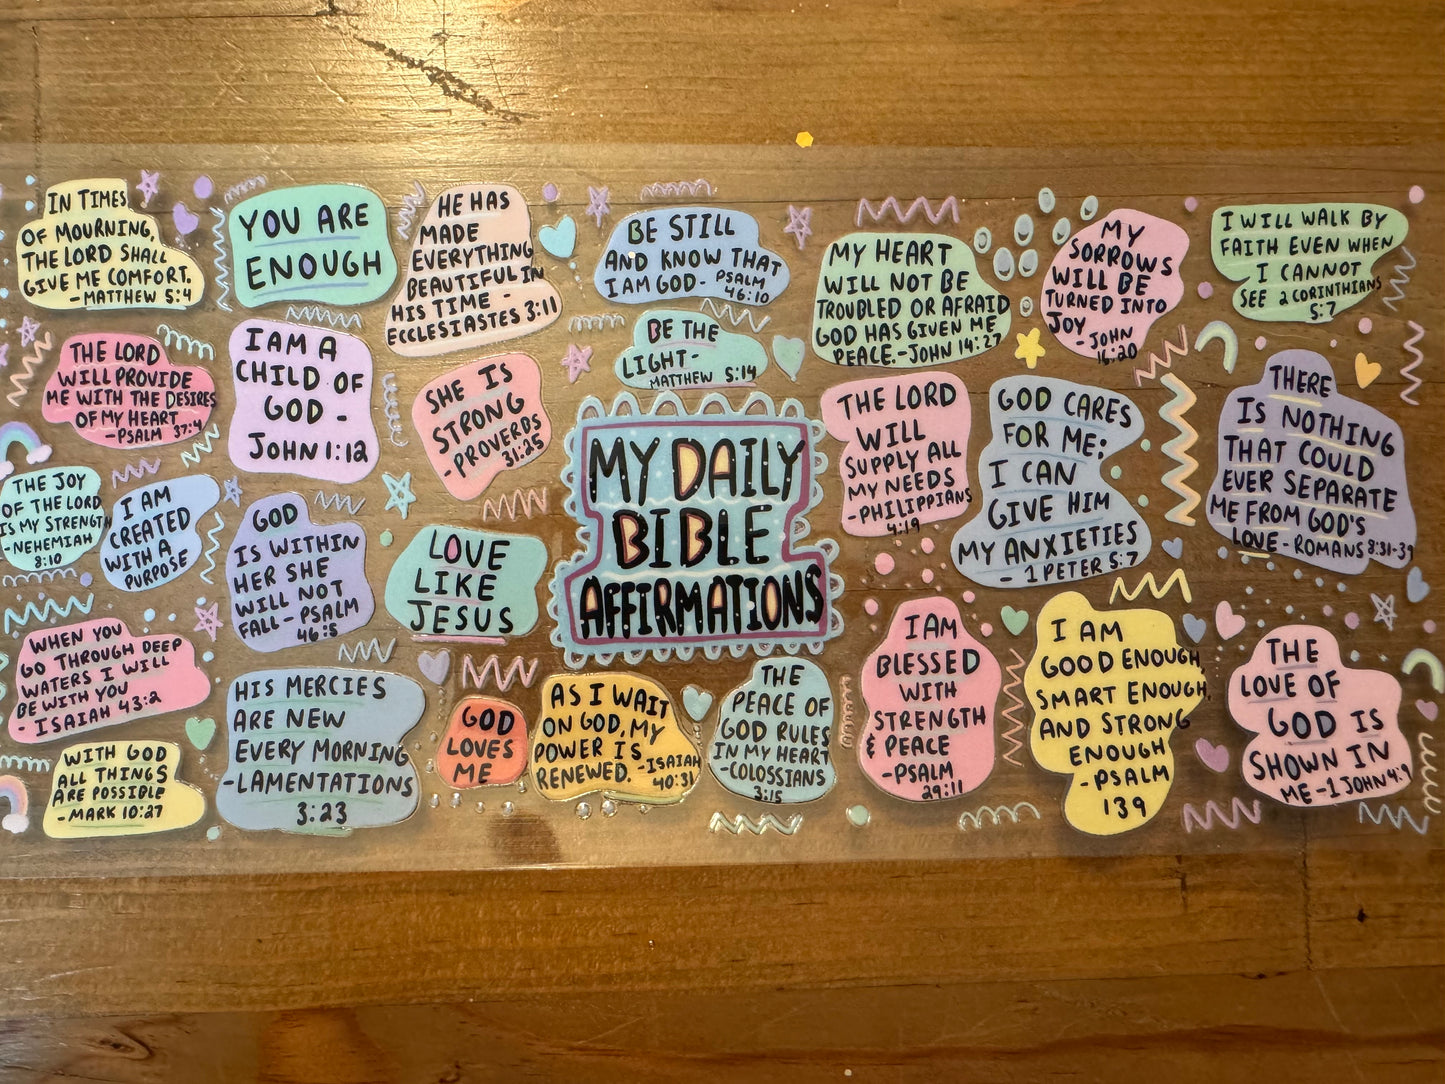 IN TIMES
OF MOURNING,
THE LORD SHALL
GIVE ME COMFORT.
-MATTHEW 5:4
YOU ARE
ENOUGH
HE HAS
MADE
EVERYTHING
BEAUTIFUL IN
HIS TIME -
ECCLESIASTES 3:11
BE STILL
AND KNOW THAT
I AM GOD- PSALM
46:10
MY HEART
WILL NOT BE
TROUBLED OR AFRAID
GOD HAS GIVEN ME
PEACE.-JOHN 14:27
MY
SORROWS
WILL BE
TURNED INTO
JOY -JOHN
16:20
I WILL WALK BY
FAITH EVEN WHEN
I CANNOT
SEE 2 CORINTHIANS
5:7
THE LORD
WILL PROVIDE
ME WITH THE DESIRES
OF MY HEART
-PSALM 37:4
I AM A
CHILD OF
GOD -
JOHN 1:12
SHE IS
STRONG
-PROVERBS
31:25
BE THE
LIGHT-
MATTHEW 5:14
MY DAILY
BIBLE
AFFIRMATIONS
THE LORD
WILL
SUPPLY ALL
MY NEEDS
-PHILIPPIANS
4:19
GOD CARES
FOR ME;
I CAN
GIVE HIM
MY ANXIETIES
- 1 PETER 5:7
THERE
IS NOTHING
THAT COULD
EVER SEPARATE
ME FROM GOD'S
LOVE-ROMANS 8:31-39
THE JOY
OF THE LORD
IS MY STRENGTH
-NEHEMIAH
8:10
I AM
CREATED
WITH A
PURPOSE
GOD
IS WITHIN
HER SHE
WILL NOT
FALL-PSALM
46:5
LOVE
LIKE
JESUS
WHEN YOU
GO THROUGH DEEP
WATERS I WILL
BE WITH YOU
-ISAIAH 43:2
WITH GOD
ALL THINGS
ARE POSSIBLE
-MARK 10:27
HIS MERCIES
ARE NEW
EVERY MORNING
-LAMENTATIONS
3:23
GOD
LOVES
ME
AS I WAIT
ON GOD, MY
POWER IS
RENEWED. -ISAIAH
40:31
THE
PEACE OF
GOD RULES
IN MY HEART
-COLOSSIANS
3:15
I AM
BLESSED
WITH
STRENGTH
& PEACE
-PSALM
29:11
I AM
GOOD ENOUGH,
SMART ENOUGH,
AND STRONG
ENOUGH
-PSALM
139
THE
LOVE OF
GOD IS
SHOWN IN
ME-1 JOHN 4:9